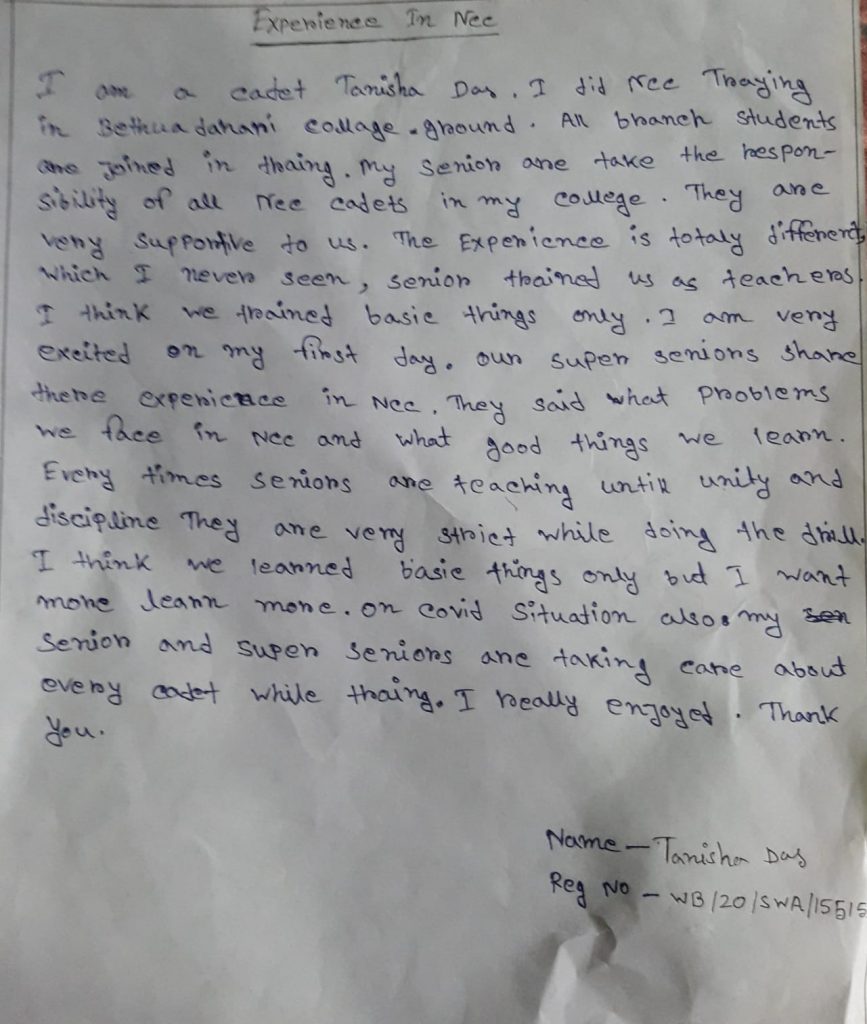 Experience In Ncc
I am a cadet Tanisha Das. I did Ncc Traying
in Bethuadahari collage ground. All branch students
are joined in thaing. My senior are take the respon-
sibility of all Ncc cadets in my college. They are
very supportive to us. The Experience is totaly different
which I never seen, senior trained us as teachers.
I think we trained basic things only. I am very
excited on my first day. our super seniors share
there experience in Ncc. They said what problems
we face in Ncc and what good things we learn.
Every times seniors are teaching untill unity and
discipline They are very strict while doing the drill.
I think we learned basic things only but I want
more learn more. on covid situation also. my sen
senior and super seniors are taking care about
every cadet while thaing. I really enjoyed. Thank
you.
Name - Tanisha Das
Reg No - WB/20/SWA/15515